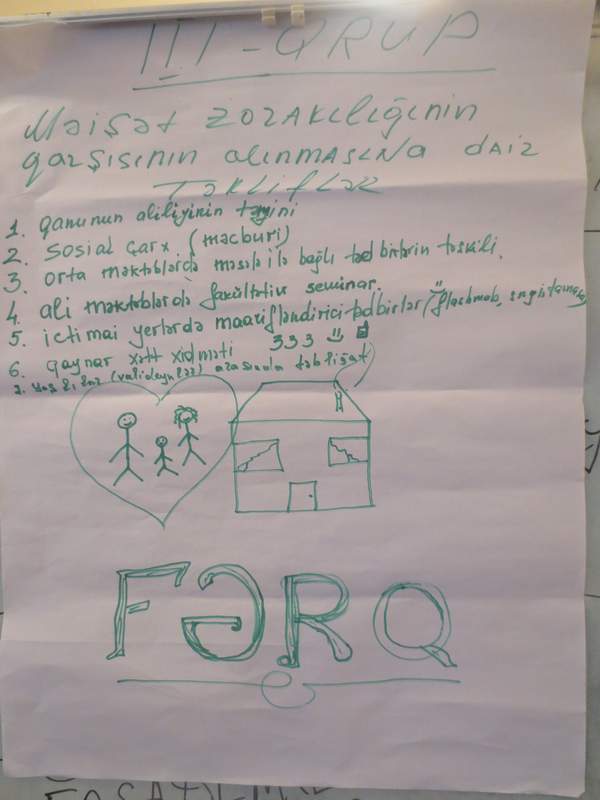 III - QRUP
Məişət zorakılığının
qarşısının alınmasına dair
Təkliflər
1. qanunun aliliyinin təyini
2. Sosial çarx (məcburi)
3. orta məktəblərdə məsələ ilə bağlı tədbirlərin təşkili.
4. ali məktəblərdə fakültativ seminar.
5. ictimai yerlərdə maarifləndirici tədbirlər (fləshmob,
6. qaynar xətt xidməti 333
7. (valideynlər) arasında təbliğat
FƏRQ